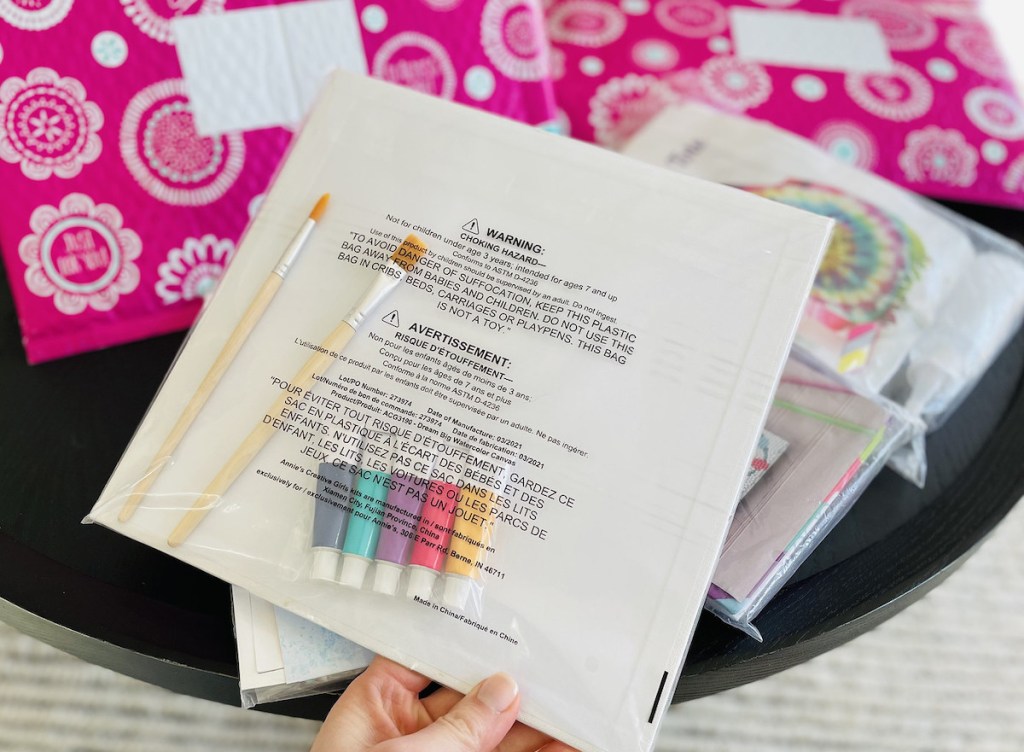 WARNING:
CHOKING HAZARD—
Not for children under age 3 years; intended for ages 7 and up
Conforms to ASTM D-4236
Use of this product by children should be supervised by an adult. Do not ingest
"TO AVOID DANGER OF SUFFOCATION, KEEP THIS PLASTIC
BAG AWAY FROM BABIES AND CHILDREN. DO NOT USE THIS
BAG IN CRIBS, BEDS, CARRIAGES OR PLAYPENS. THIS BAG
IS NOT A TOY."
AVERTISSEMENT:
RISQUE D'ÉTOUFFEMENT—
Non pour les enfants âgés de moins de 3 ans;
Conçu pour les âges de 7 ans et plus
Conforme à la norme ASTM D-4236
L'utilisation de ce produit par les enfants doit être supervisée par un adulte. Ne pas ingérer
Lot/PO Number: 273974 Date of Manufacture: 03/2021
Lot/Numéro de bon de commande: 273974 Date de fabrication: 03/2021
Product/Produit: ACG3196 - Dream Big Watercolor Canvas
"POUR ÉVITER TOUT RISQUE D'ÉTOUFFEMENT, GARDEZ CE
SAC EN PLASTIQUE À L'ÉCART DES BÉBÉS ET DES
ENFANTS. N'UTILISEZ PAS CE SAC DANS LES LITS
D'ENFANT, LES LITS, LES VOITURES OU LES PARCS DE
JEUX. CE SAC N'EST PAS UN JOUET."
Annie's Creative Girls kits are manufactured in / sont fabriqués en
Xiamen City, Fujian Province, China
exclusively for / exclusivement pour Annie's, 306 E Parr Rd, Berne, IN 46711
Made in China/Fabriqué en Chine